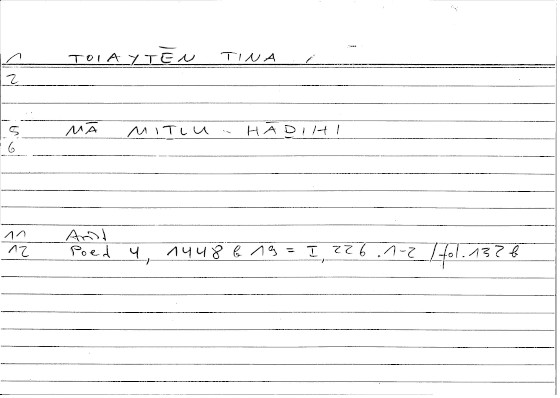 1 TOIAYTĒN TINA
2
5 MĀ MIṮLU - HĀḎIHI
6
11 Arist
12 Poed 4, 1448 b 19 = I, 226.1-2 / fol. 132 b